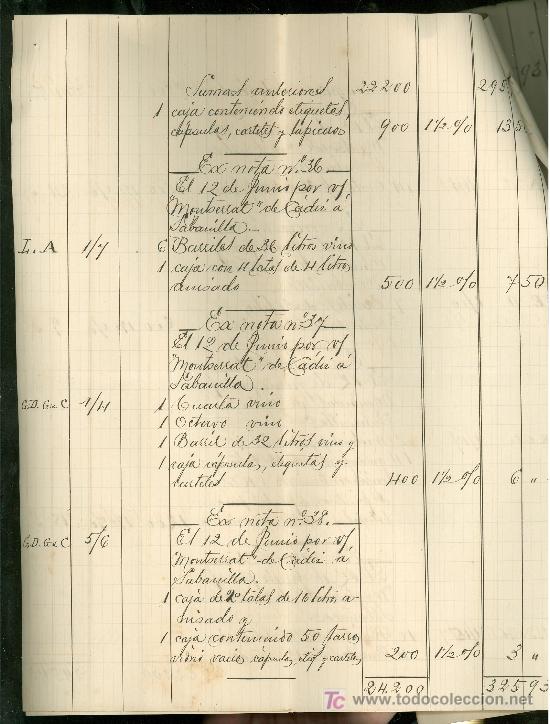 Sumas anteriores 22200 295
1 caja conteniendo etiquetas,
cápsulas, carteles y tapices 900 1½% 13 50
Ex nota nº 36
El 12 de Junio por v/
"Montserrat" de Cádiz á
Sabanilla.
L. A 1/7 6 Barriles de 36 litros vino
1 caja con 4 latas de 4 litros
anisado 500 1½% 7 50
Ex nota nº 37
El 12 de Junio por v/
"Montserrat" de Cádiz á
Sabanilla.
G.D. G. C. 1/4 1 Cuarta vino
1 Octavo vino
1 Barril de 32 litros vino y
1 caja cápsulas, etiquetas y
carteles 400 1½% 6 "
Ex nota nº 38.
G.D. G. C. 5/6 El 12 de Junio por v/
"Montserrat" de Cádiz á
Sabanilla.
1 caja de 2 latas de 16 litros a-
nisado y
1 caja conteniendo 50 tarros
vidrio vacios, cápsulas, etiq y carteles, 200 1½% 3 "
24.200 325 93
TC todocoleccion
www.todocoleccion.net